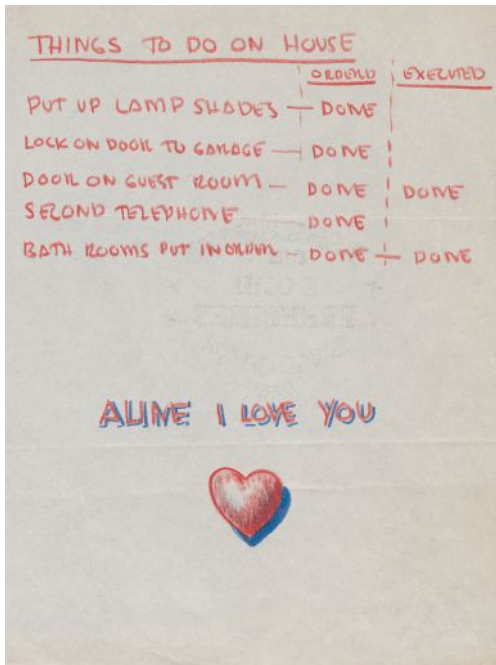 THINGS TO DO ON HOUSE
ORDERED EXECUTED
PUT UP LAMP SHADES — DONE
LOCK ON DOOR TO GARAGE — DONE
DOOR ON GUEST ROOM — DONE DONE
SECOND TELEPHONE — DONE
BATH ROOMS PUT IN ORDER — DONE — DONE
ALINE I LOVE YOU